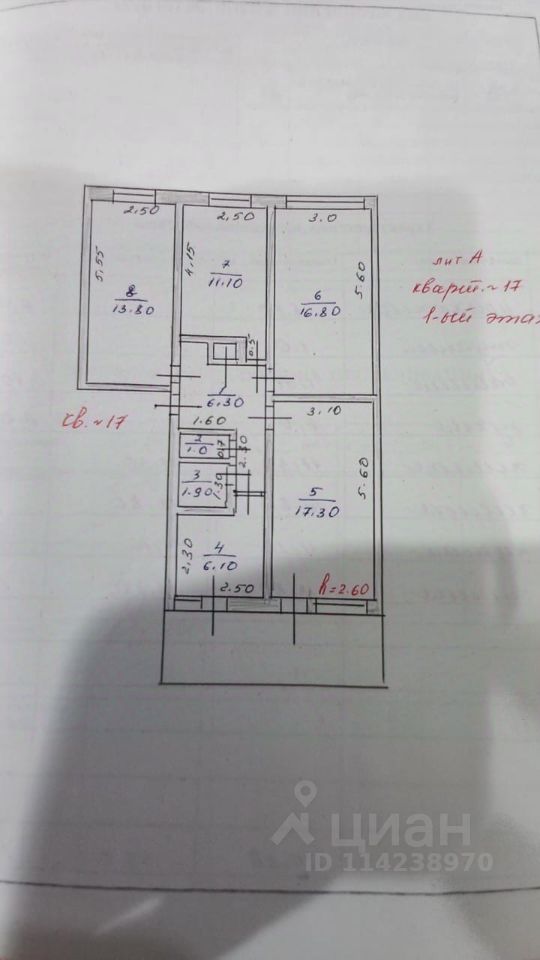 2.50
2,50
3.0
5.55
4.15
5.60
8
13.80
7
11.10
6
16.80
лит А
кварт. ~ 17
1-ый этаж
0.5
1
6.30
1.60
3.10
кв. ~ 17
2
1.0
0.7
2.30
3
1.90
1.30
5
17.30
5.60
2,30
4
6.10
2.50
h=2.60
циан
ID 114238970